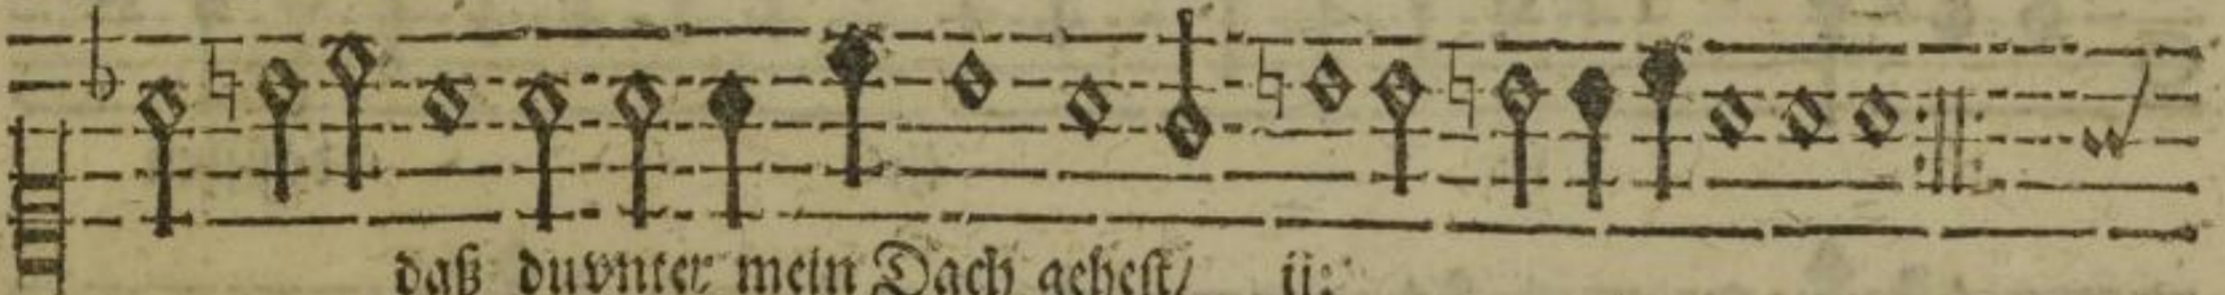 daß du vnter mein Dach gehest/ ij: